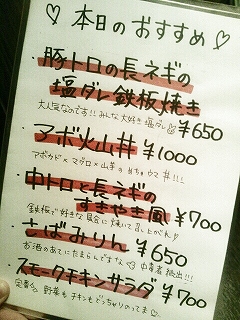 ♡本日のおすすめ♡
・豚トロの長ネギの
塩ダレ鉄板焼き
大人気なのです!!みんな大好き塩ダレ ¥650
・アボ火山丼 ¥1000
アボカド×マグロ×山芋のめちゃウマ丼!!!
・中トロと長ネギの
すきやき風 ¥700
鉄板で好きな具合に焼いて召し上がれ♪
・さばみりん ¥650
お酒のあてにたまらんですな 中毒者
・スモークチキンサラダ ¥700
定番 野菜もチキンもどっちゃりのってま